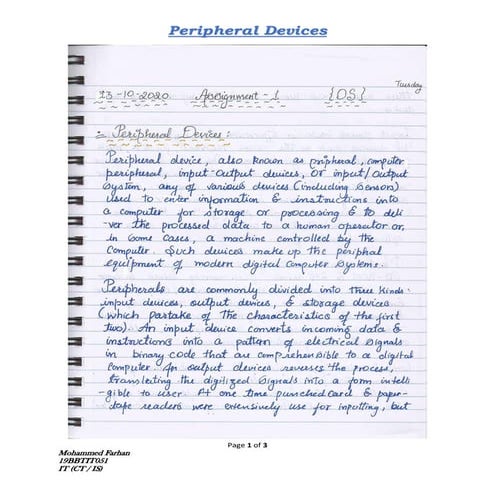 Peripheral Devices
Tuesday
13-10-2020. Assignment - 1 {OS}
Peripheral Devices:
Peripheral device, also known as pripheral, computer
peripheral, input-output devices, or input/output
System, any of various devices (including Sensors)
used to enter information & instructions into
a computer for storage or processing & to deli-
-ver the processed data to a human operator or,
in Some cases, a machine controlled by the
Computer. Such devices make up the periphal
equipment of modern digital Computer Systems.
Peripherals are commonly divided into Three Kinds:
input devices, output devices, & storage devices
(which partake of the characteristics of the first
two). An input device converts incoming data &
instructions into a pattern of electrical Signals
in binary code that are comprehensible to a digital
Computer. An output devices reverses the process,
translating the digitized Signals into a form intelli-
-gible to user. At one time punched card & paper-
-tape readers were extensively use for inputting, but
Page 1 of 3
Mohammed Farhan
19BBTIT051
IT (CT / IS)